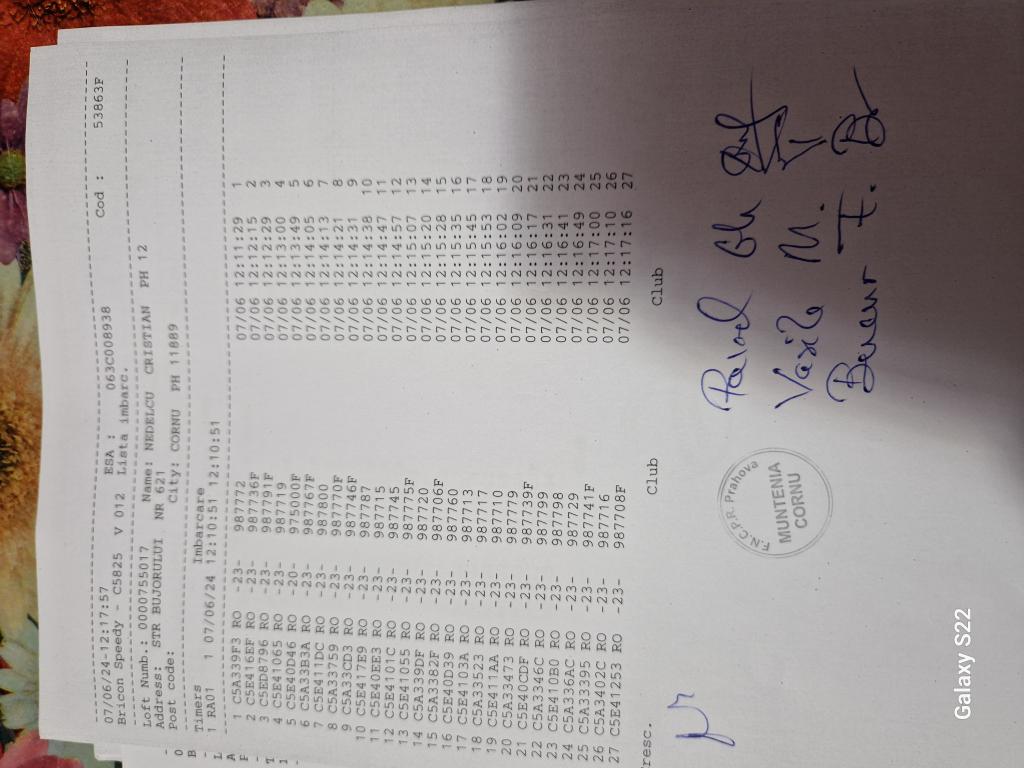 07/06/24-12:17:57 ESA : 063C008938 Cod : 53863F
Bricon Speedy - C5825 V 012 Lista imbarc.
Loft Numb.: 0000755017 Name: NEDELCU CRISTIAN PH 12
Address: STR BUJORULUI NR 621
Post code: City: CORNU PH 11889
Timers Imbarcare
1 RA01 1 07/06/24 12:10:51 12:10:51
1 C5A339F3 RO -23- 987772 07/06 12:11:29 1
2 C5E416EF RO -23- 987736F 07/06 12:12:15 2
3 C5ED8796 RO -23- 987791F 07/06 12:12:29 3
4 C5E41065 RO -23- 987719 07/06 12:13:00 4
5 C5E40D46 RO -20- 975000F 07/06 12:13:49 5
6 C5A33B3A RO -23- 987767F 07/06 12:14:05 6
7 C5E411DC RO -23- 987800 07/06 12:14:13 7
8 C5A33759 RO -23- 987770F 07/06 12:14:21 8
9 C5A33CD3 RO -23- 987746F 07/06 12:14:31 9
10 C5E417E9 RO -23- 987787 07/06 12:14:38 10
11 C5E40EE3 RO -23- 987715 07/06 12:14:47 11
12 C5E4101C RO -23- 987745 07/06 12:14:57 12
13 C5E41055 RO -23- 987775F 07/06 12:15:07 13
14 C5A339DF RO -23- 987720 07/06 12:15:20 14
15 C5A3382F RO -23- 987706F 07/06 12:15:28 15
16 C5E40D39 RO -23- 987760 07/06 12:15:35 16
17 C5E4103A RO -23- 987713 07/06 12:15:45 17
18 C5A33523 RO -23- 987717 07/06 12:15:53 18
19 C5E411AA RO -23- 987710 07/06 12:16:02 19
20 C5A33473 RO -23- 987779 07/06 12:16:09 20
21 C5E40CDF RO -23- 987739F 07/06 12:16:17 21
22 C5A3346C RO -23- 987799 07/06 12:16:31 22
23 C5E410B0 RO -23- 987798 07/06 12:16:41 23
24 C5A336AC RO -23- 987729 07/06 12:16:49 24
25 C5A33395 RO -23- 987741F 07/06 12:17:00 25
26 C5A3402C RO -23- 987716 07/06 12:17:10 26
27 C5E41253 RO -23- 987708F 07/06 12:17:16 27
resc. Club Club
F.N.C.P.R. Prahova
MUNTENIA
CORNU
Vasile M.
Galaxy S22